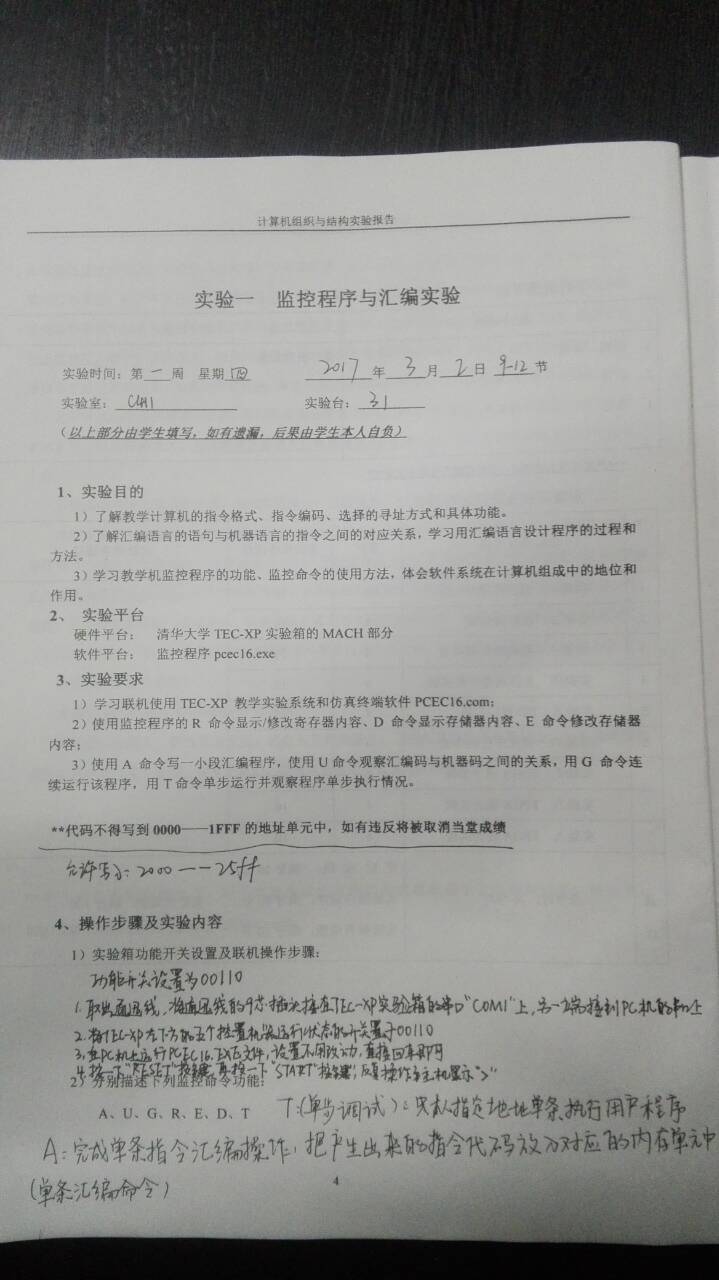 计算机组织与结构实验报告
实验一 监控程序与汇编实验
实验时间：第一周 星期四 2017年3月2日9-12节
实验室： 实验台：31
（以上部分由学生填写，如有遗漏，后果由学生本人自负）
1、实验目的
1）了解教学计算机的指令格式、指令编码、选择的寻址方式和具体功能。
2）了解汇编语言的语句与机器语言的指令之间的对应关系，学习用汇编语言设计程序的过程和
方法。
3）学习教学机监控程序的功能、监控命令的使用方法，体会软件系统在计算机组成中的地位和
作用。
2、 实验平台
硬件平台： 清华大学 TEC-XP 实验箱的 MACH 部分
软件平台： 监控程序 pcec16.exe
3、实验要求
1）学习联机使用 TEC-XP 教学实验系统和仿真终端软件 PCEC16.com；
2）使用监控程序的 R 命令显示/修改寄存器内容、D 命令显示存储器内容、E 命令修改存储器
内容；
3）使用 A 命令写一小段汇编程序，使用 U 命令观察汇编码与机器码之间的关系，用 G 命令连
续运行该程序，用 T 命令单步运行并观察程序单步执行情况。
**代码不得写到 0000——1FFF 的地址单元中，如有违反将被取消当堂成绩
允许写：2000——25ff
4、操作步骤及实验内容
1）实验箱功能开关设置及联机操作步骤：
功能开关设置为00110
1.取出通迅线，将通迅线的9芯插头接在TEC-XP实验箱的串口"COM1"上，另一端接到PC机的串口上
2.将TEC-XP左下方的五个控置机器运行状态的开关置于00110
3.在PC机上运行PCEC16.EXE文件，设置不用改动，直接回车即可
4.按一下"RESET"按键，再按一下"START"按键，主机显示">"
2）分别描述下列监控命令功能：
A、U、G、R、E、D、T T：(单步调试)：只从指定地址单条执行用户程序
A：完成单条指令汇编操作，把产生出来的指令代码放入对应的内存单元中
(单条汇编命令)
4